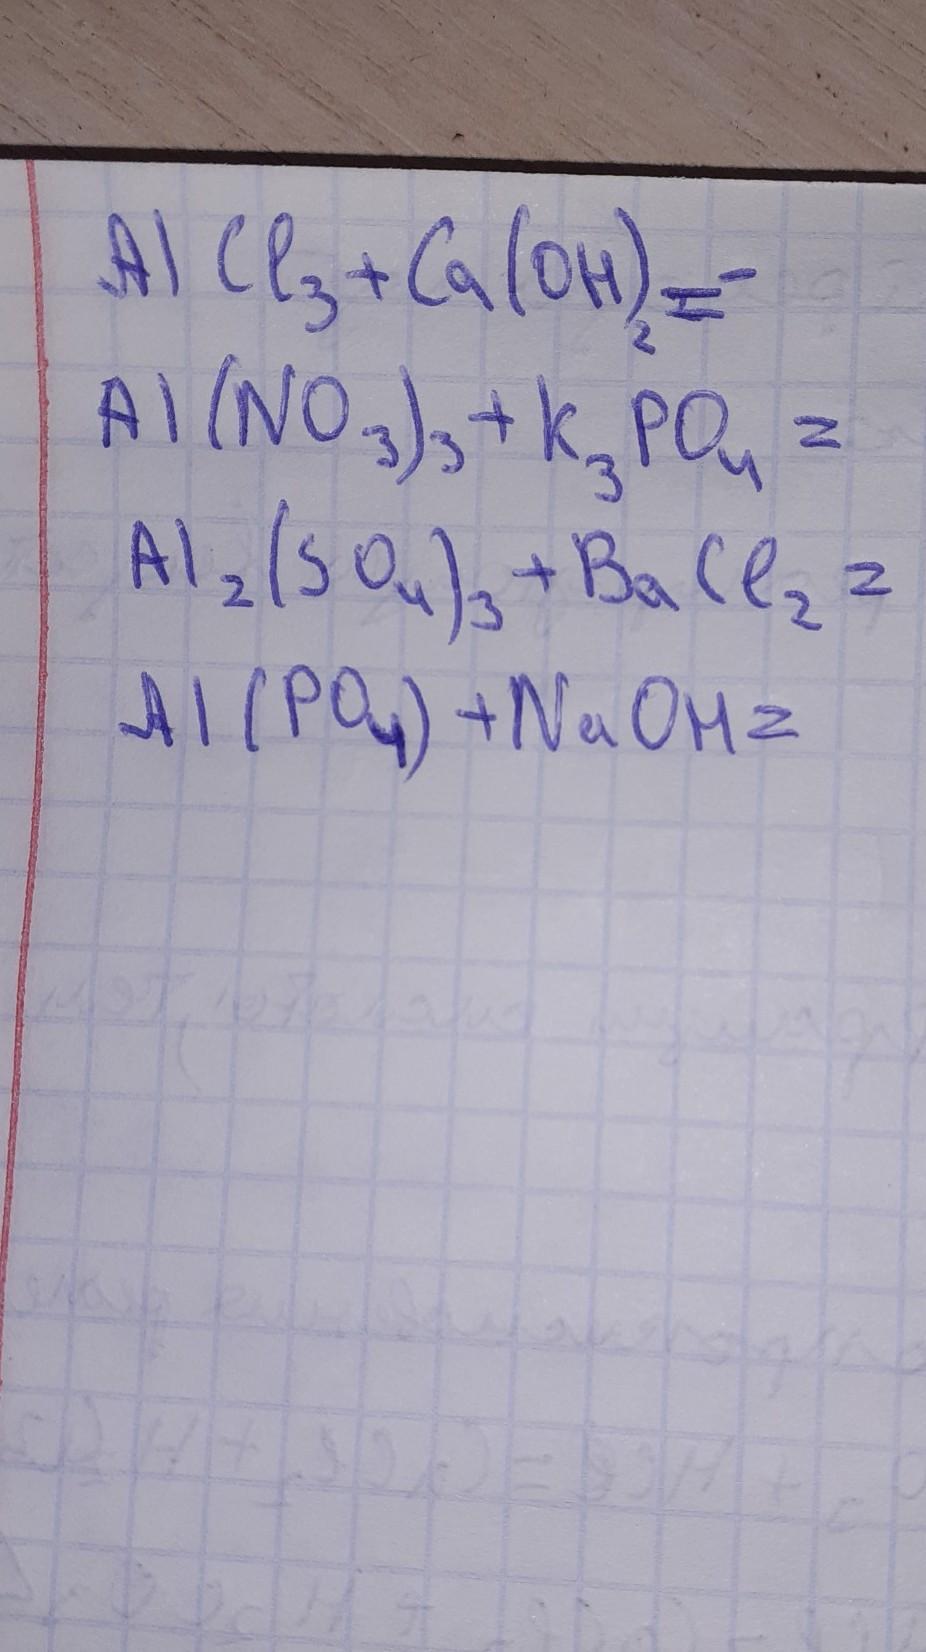 AlCl₃+Ca(OH)₂=
Al(NO₃)₃+K₃PO₄=
Al₂(SO₄)₃+BaCl₂=
Al(PO₄)+NaOH=